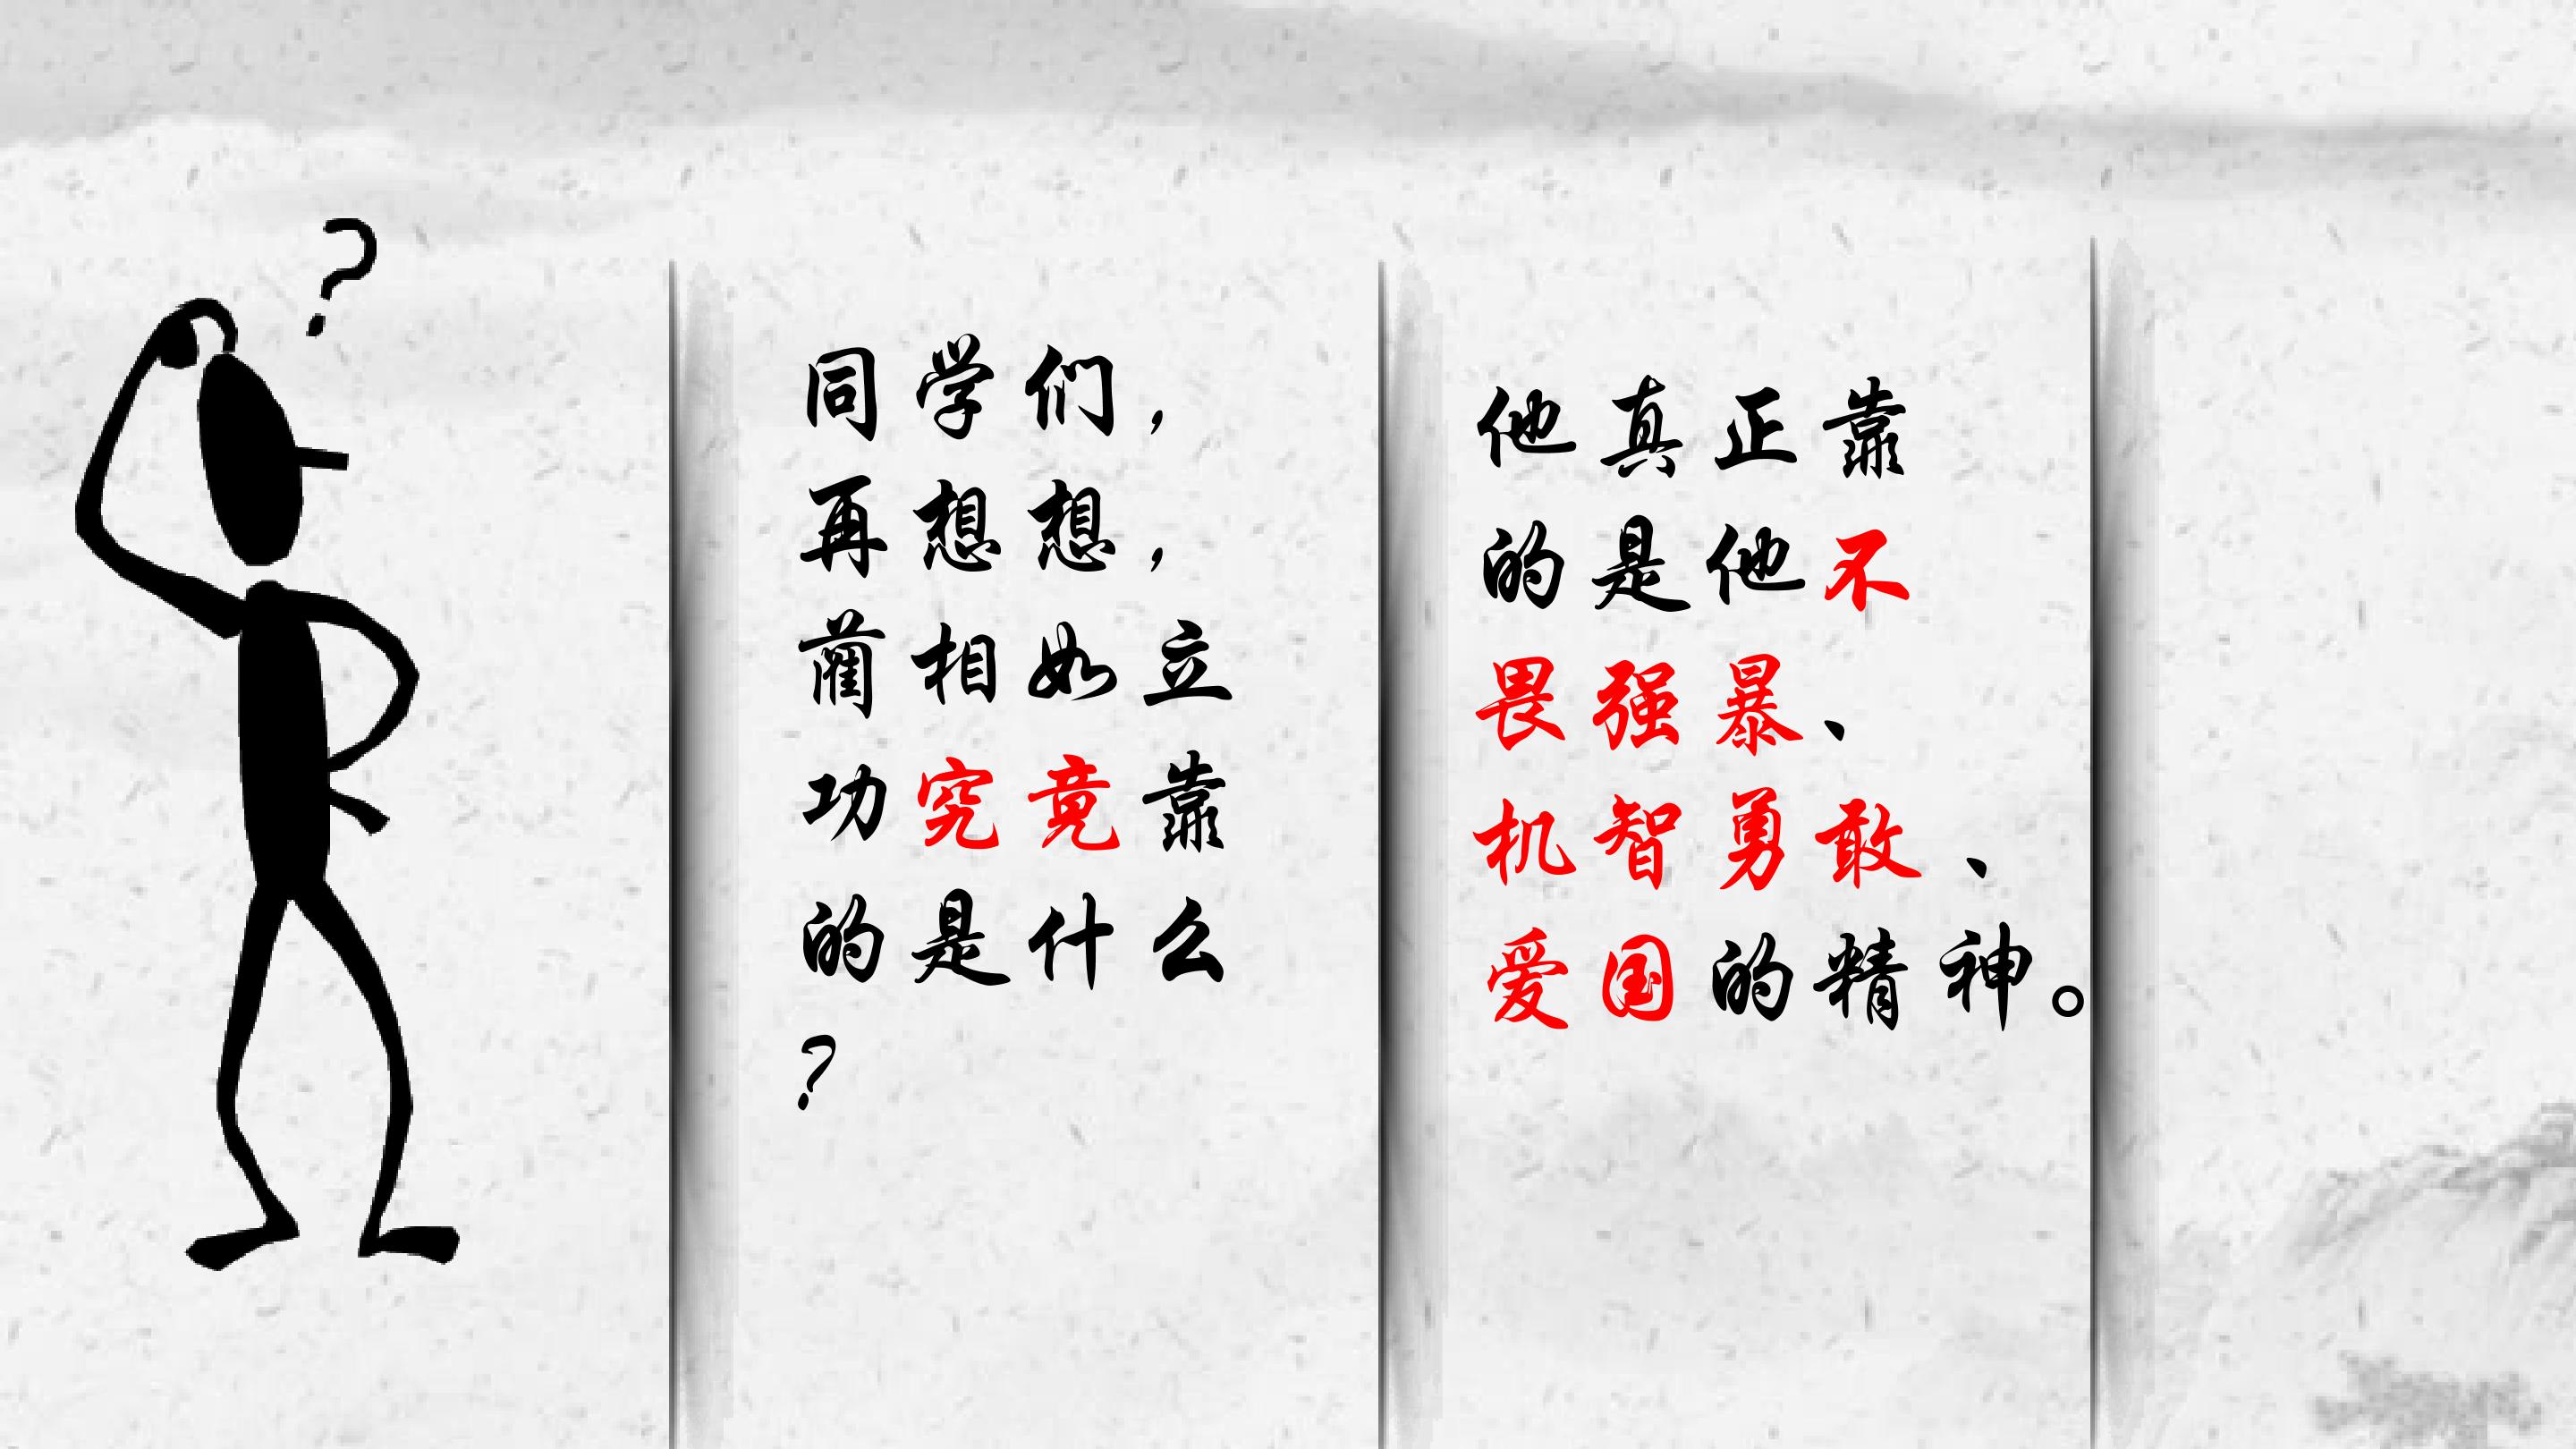 ?
同学们，
再想想，
蔺相如立
功究竟靠
的是什么
?
他真正靠
的是他不
畏强暴、
机智勇敢、
爱国的精神。